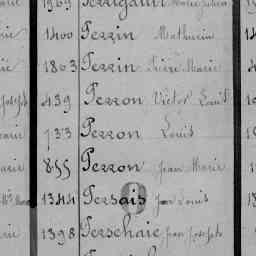 1969 Perrigault
1400 Perrin Mathurin
1803 Perrin Pierre Marie
439 Perron Victor Louis
733 Perron Louis
855 Perron Jean Marie
1344 Persais Jean Louis
1398 Perschaie Jean Joseph